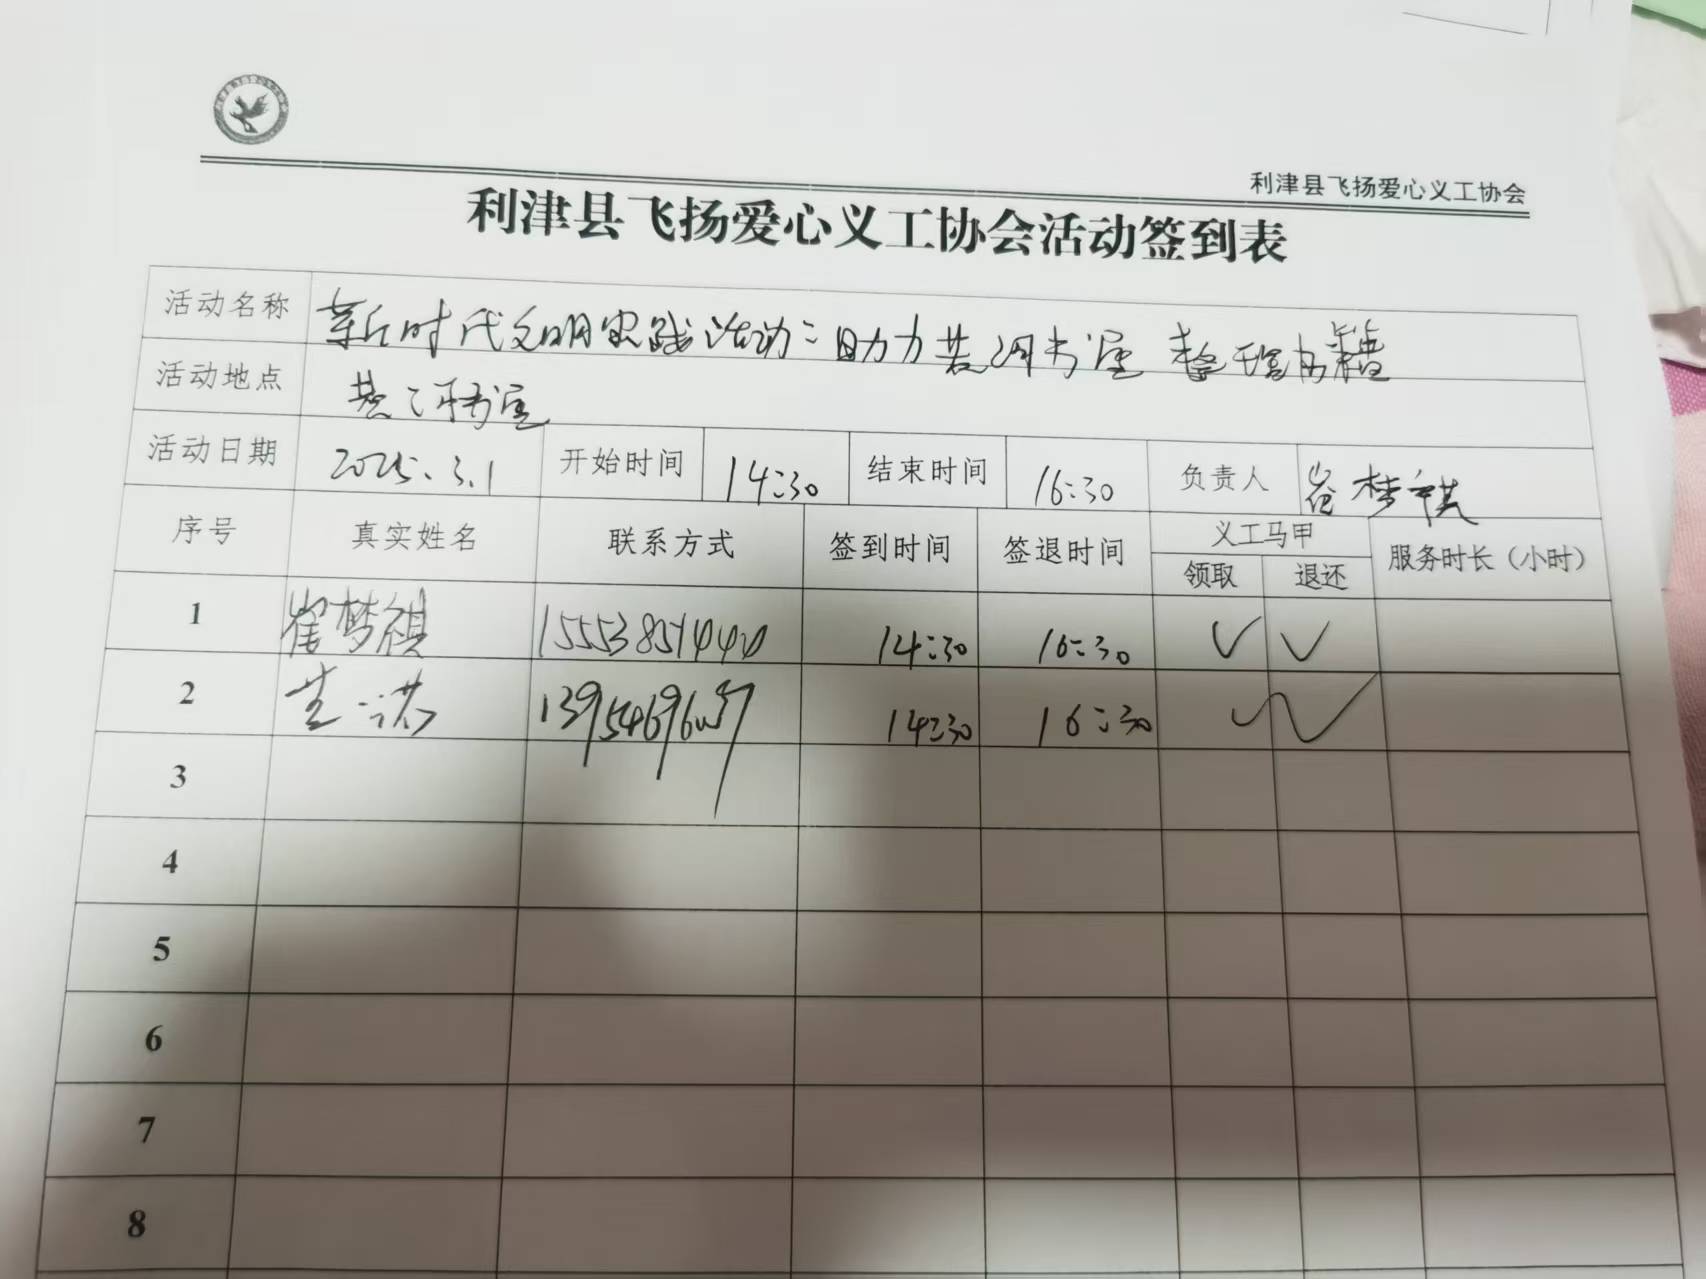 利津县飞扬爱心义工协会
利津县飞扬爱心义工协会活动签到表
活动名称 新时代文明实践活动:助力黄河书屋 整理书籍
活动地点 黄河书屋
活动日期 2025.3.1 开始时间 14:30 结束时间 16:30 负责人 崔梦祺
序号 真实姓名 联系方式 签到时间 签退时间 义工马甲 服务时长(小时)
领取 退还
1 崔梦祺 14:30 16:30 ✓ ✓
2 14:30 16:30 ✓ ✓
3
4
5
6
7
8